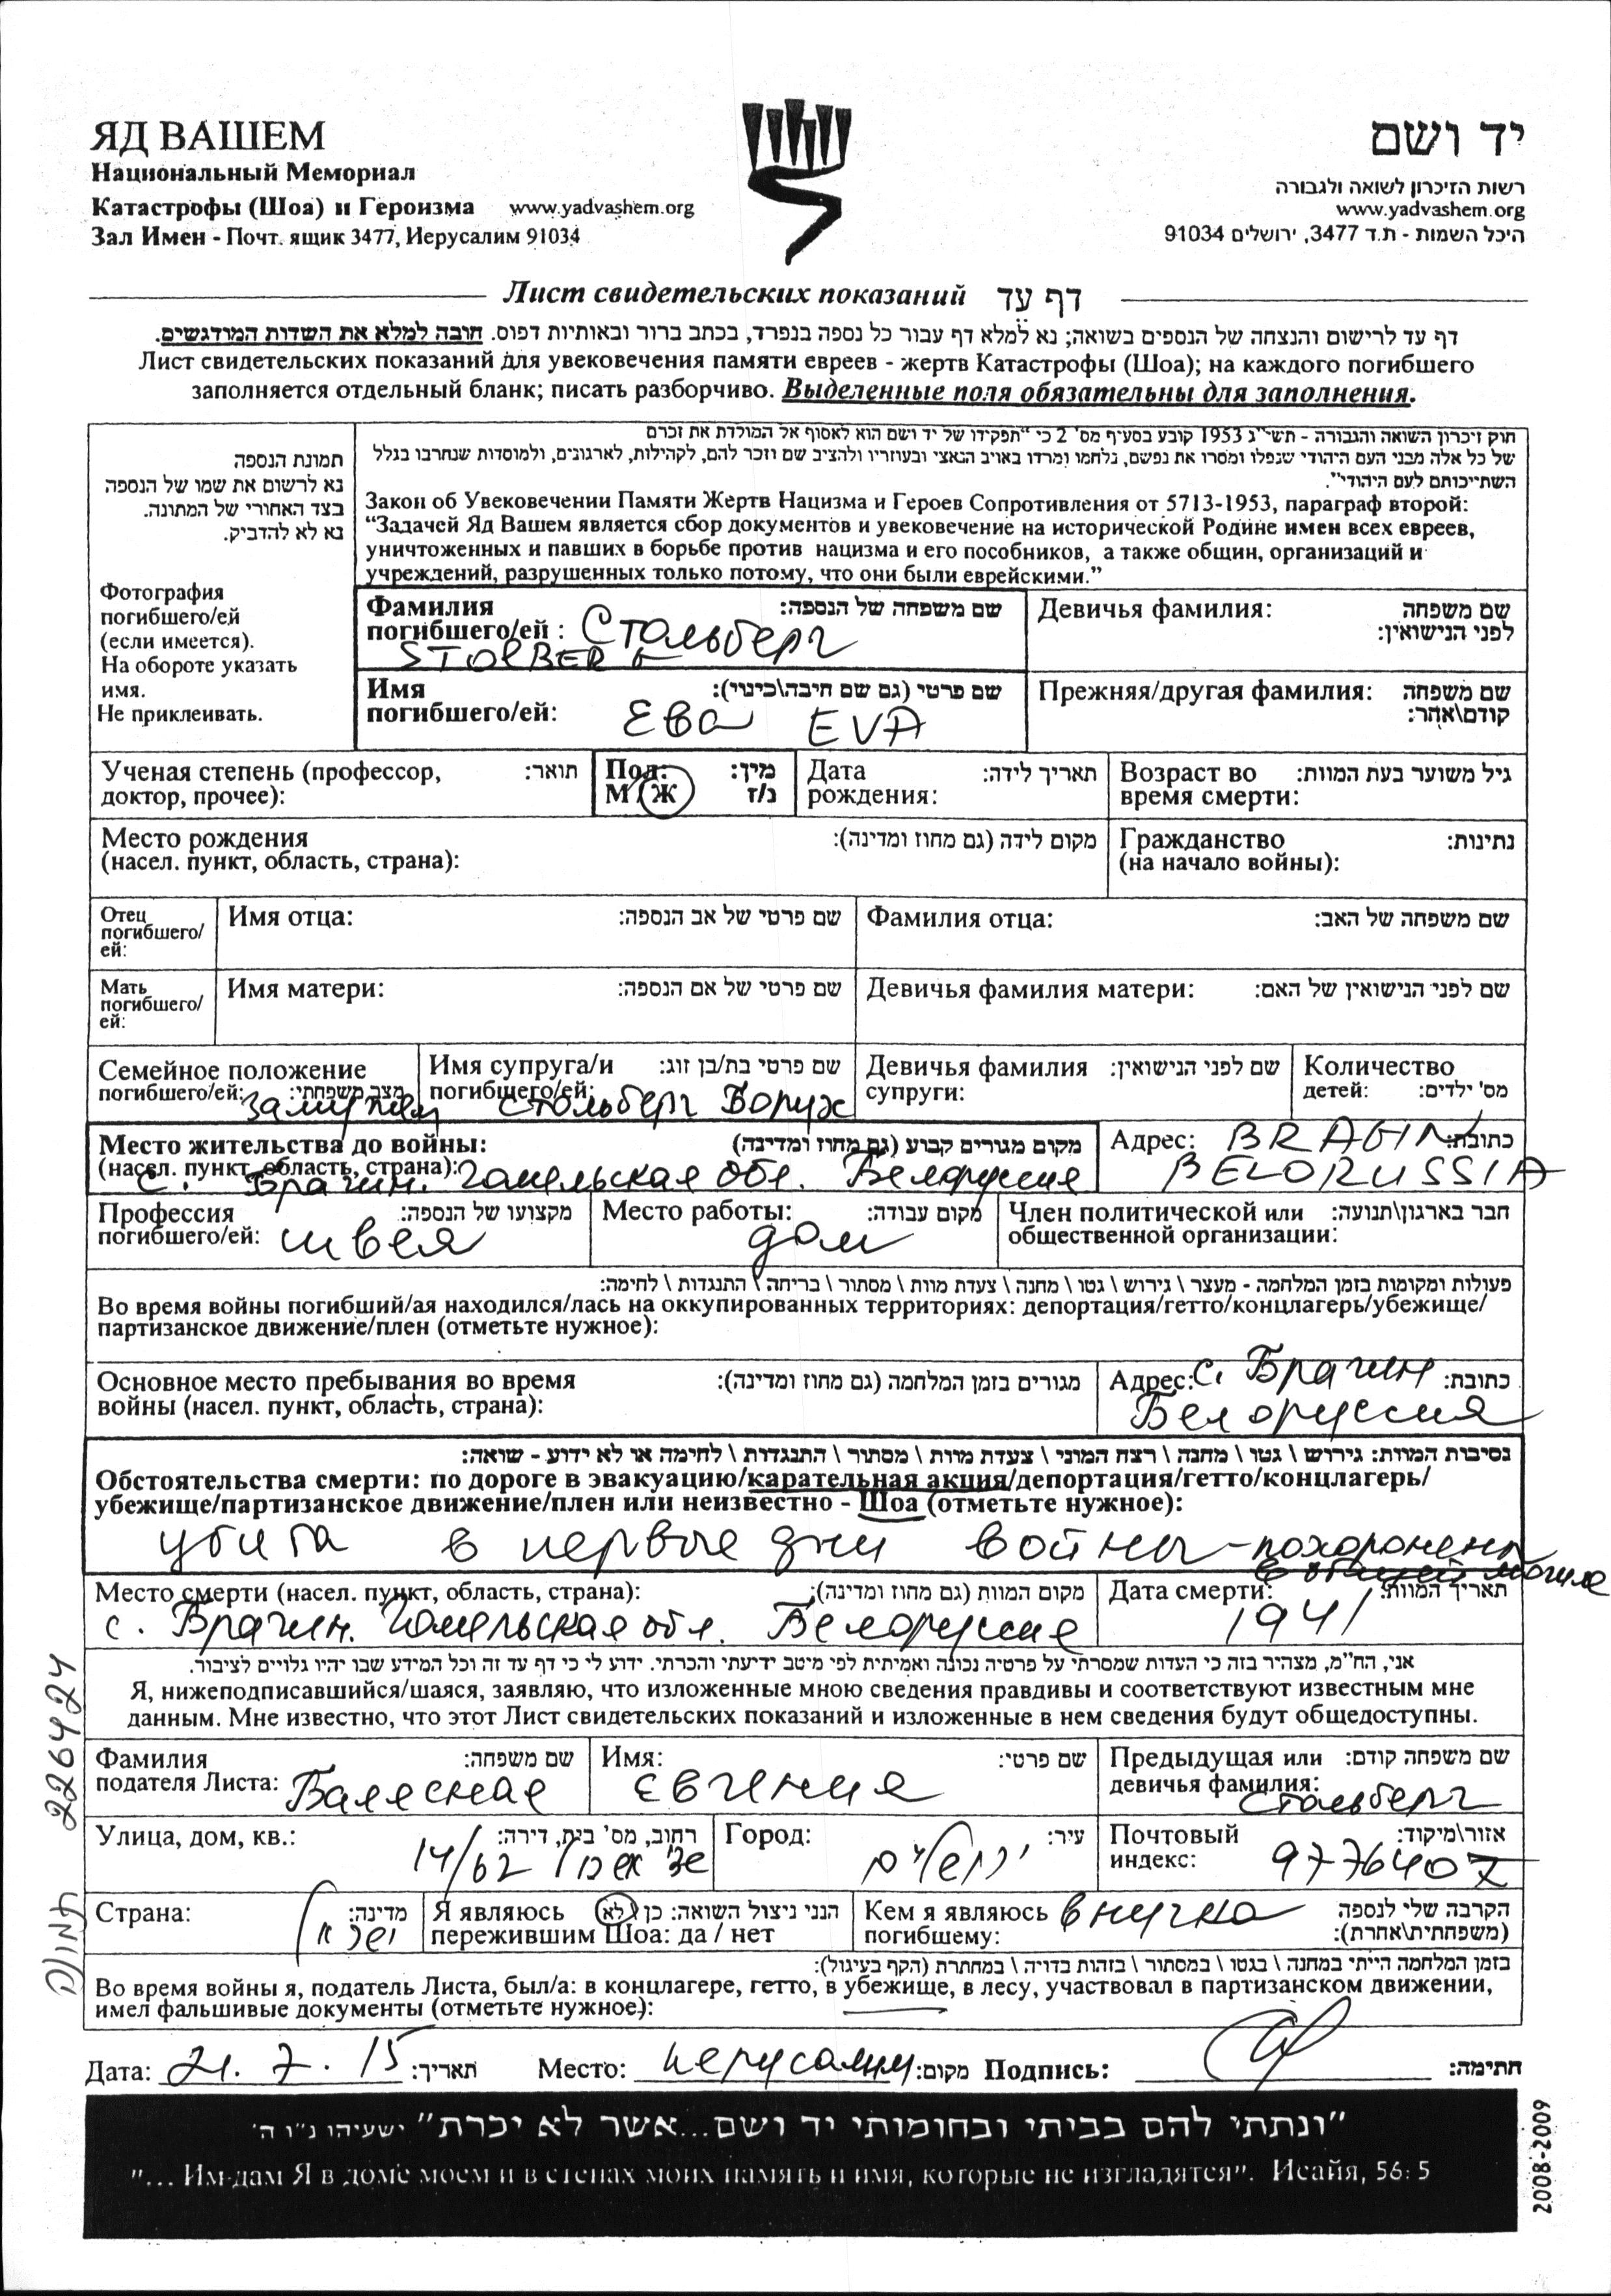 ЯД ВАШЕМ
Национальный Мемориал
Катастрофы (Шоа) и Героизма www.yadvashem.org
Зал Имен - Почт. ящик 3477, Иерусалим 91034
יד ושם
רשות הזיכרון לשואה ולגבורה
www.yadvashem.org
היכל השמות - ת.ד 3477, ירושלים 91034
Лист свидетельских показаний דף עד
דף עד לרישום והנצחה של הנספים בשואה; נא למלא דף עבור כל נספה בנפרד, בכתב ברור ובאותיות דפוס. חובה למלא את השדות המודגשים.
Лист свидетельских показаний для увековечения памяти евреев - жертв Катастрофы (Шоа); на каждого погибшего
заполняется отдельный бланк; писать разборчиво. Выделенные поля обязательны для заполнения.
תמונת הנספה
נא לרשום את שמו של הנספה
בצד האחורי של המתונה.
נא לא להדביק.
Фотография
погибшего/ей
(если имеется).
На обороте указать
имя.
Не приклеивать.
חוק זיכרון השואה והגבורה - תשי"ג 1953 קובע בסעיף מס' 2 כי "תפקידו של יד ושם הוא לאסוף אל המולדת את זכרם
של כל אלה מבני העם היהודי שנפלו ומסרו את נפשם, נלחמו ומרדו באויב הנאצי ובעוזריו ולהציב שם וזכר להם, לקהילות, לארגונים, ולמוסדות שנחרבו בגלל
השתייכותם לעם היהודי".
Закон об Увековечении Памяти Жертв Нацизма и Героев Сопротивления от 5713-1953, параграф второй:
“Задачей Яд Вашем является сбор документов и увековечение на исторической Родине имен всех евреев,
уничтоженных и павших в борьбе против нацизма и его пособников, а также общин, организаций и
учреждений, разрушенных только потому, что они были еврейскими.”
Фамилия שם משפחה של הנספה:
погибшего/ей : Стольберг
STOLBERG
Девичья фамилия: שם משפחה
לפני הנישואין:
Имя שם פרטי (גם שם חיבה\כינוי):
погибшего/ей: Ева EVA
Прежняя/другая фамилия: שם משפחה
קודם\אחר:
Ученая степень (профессор, תואר:
доктор, прочее):
Пол: מין:
М/Ж נ/ז
Дата תאריך לידה:
рождения:
Возраст во גיל משוער בעת המוות:
время смерти:
Место рождения מקום לידה (גם מחוז ומדינה):
(насел. пункт, область, страна):
Гражданство נתינות:
(на начало войны):
Отец
погибшего/
ей:
Имя отца: שם פרטי של אב הנספה:
Фамилия отца: שם משפחה של האב:
Мать
погибшего/
ей:
Имя матери: שם פרטי של אם הנספה:
Девичья фамилия матери: שם לפני הנישואין של האם:
Семейное положение
погибшего/ей: מצב משפחתי:
замужем
Имя супруга/и שם פרטי בת/בן זוג:
погибшего/ей:
Стольберг Борух
Девичья фамилия שם לפני הנישואין:
супруги:
Количество
детей: מס' ילדים:
Место жительства до войны: מקום מגורים קבוע (גם מחוז ומדינה)
(насел. пункт, область, страна):
с. Брагин. Гомельская обл. Белоруссия
Адрес: BRAGIN כתובת:
BELORUSSIA
Профессия מקצועו של הנספה:
погибшего/ей: швея
Место работы: מקום עבודה:
дом
Член политической или חבר בארגון\תנועה:
общественной организации:
פעולות ומקומות בזמן המלחמה - מעצר \ גירוש \ גטו \ מחנה \ צעדת מוות \ מסתור \ בריחה \ התנגדות \ לחימה:
Во время войны погибший/ая находился/лась на оккупированных территориях: депортация/гетто/концлагерь/убежище/
партизанское движение/плен (отметьте нужное):
Основное место пребывания во время מגורים בזמן המלחמה (גם מחוז ומדינה):
войны (насел. пункт, область, страна):
Адрес: с. Брагин כתובת:
Белоруссия
נסיבות המוות: גירוש \ גטו \ מחנה \ רצח המוני \ צעדת מוות \ מסתור \ התנגדות \ לחימה או לא ידוע - שואה:
Обстоятельства смерти: по дороге в эвакуацию/карательная акция/депортация/гетто/концлагерь/
убежище/партизанское движение/плен или неизвестно - Шоа (отметьте нужное):
убита в первые дни войны - похоронена
в общей могиле
Место смерти (насел. пункт, область, страна): מקום המוות (גם מחוז ומדינה):
с. Брагин. Гомельская обл. Белоруссия
Дата смерти: תאריך המוות:
1941
אני, הח"מ, מצהיר בזה כי העדות שמסרתי על פרטיה נכונה ואמיתית לפי מיטב ידיעתי והכרתי. ידוע לי כי דף עד זה וכל המידע שבו יהיו גלויים לציבור.
Я, нижеподписавшийся/шаяся, заявляю, что изложенные мною сведения правдивы и соответствуют известным мне
данным. Мне известно, что этот Лист свидетельских показаний и изложенные в нем сведения будут общедоступны.
Фамилия שם משפחה:
подателя Листа: Балясная
Имя: שם פרטי:
Евгения
Предыдущая или שם משפחה קודם:
девичья фамилия:
Стольберг
Улица, дом, кв.: רחוב, מס' בית, דירה:
14/62
Город: עיר:
ירושלים
Почтовый אזור\מיקוד:
индекс: 9776407
Страна: מדינה:
ישראל
Я являюсь הנני ניצול השואה: כן \ לא
пережившим Шоа: да / нет
Кем я являюсь внучка הקרבה שלי לנספה
погибшему: (משפחתית\אחרת):
בזמן המלחמה הייתי במחנה \ בגטו \ במסתור \ בזהות בדויה \ במחתרת (הקף בעיגול):
Во время войны я, податель Листа, был/а: в концлагере, гетто, в убежище, в лесу, участвовал в партизанском движении,
имел фальшивые документы (отметьте нужное):
Дата: 21. 7. 15 תאריך: Место: Иерусалим מקום: Подпись: חתימה:
"ונתתי להם בביתי ובחומותי יד ושם...אשר לא יכרת" ישעיהו נ"ו ה'
"... Им дам Я в доме моем и в стенах моих память и имя, которые не изгладятся". Исайя, 56: 5
2008-2009
תמונה 226424